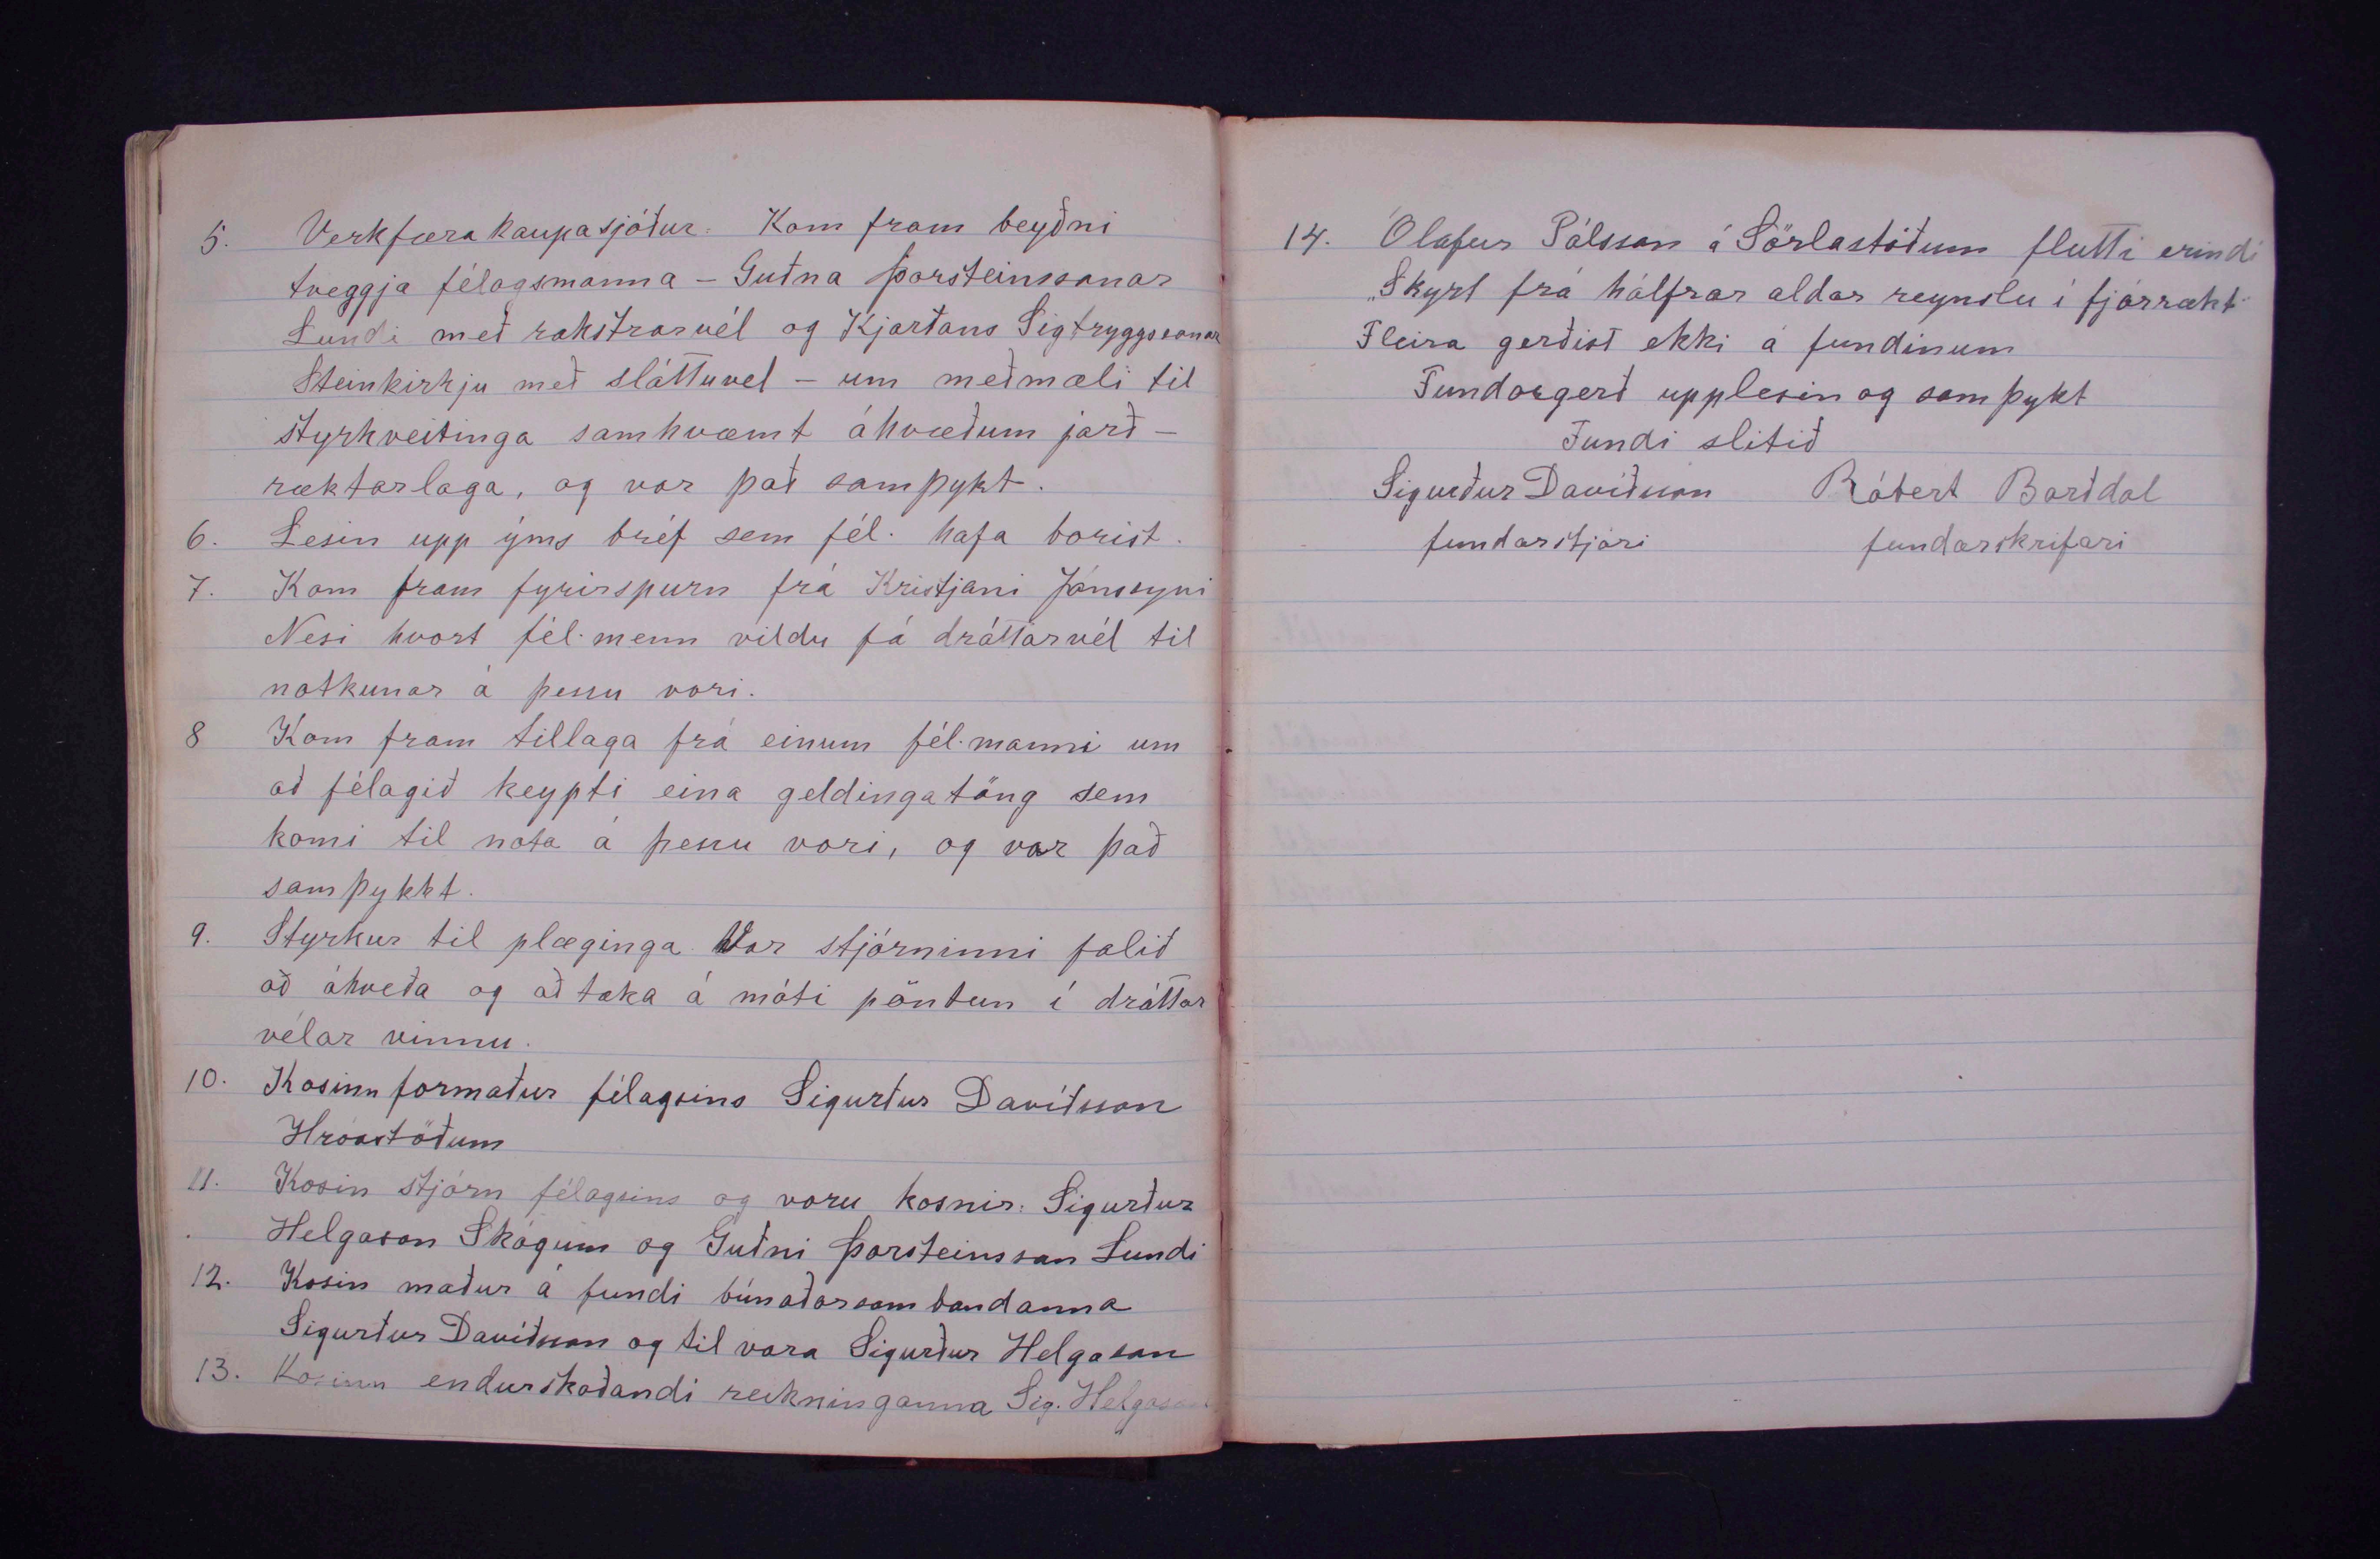 5. Verkfærakaupasjóður. Kom fram beyðni
tveggja félagsmanna – Guðna Þorsteinssonar
Lundi með rakstrarvél og Kjartans Sigtryggssonar
Steinkirkju með sláttuvel – um meðmæli til
styrkveitinga samkvæmt ákvæðum jarð-
ræktarlaga, og var það samþykt.
6. Lesin upp ýms bréf sem fél. hafa borist.
7. Kom fram fyrirspurn frá Kristjani Jónssyni
Nesi hvort fél. menn vildu fá dráttarvél til
notkunar á þessu vori.
8 Kom fram tillaga frá einum fél. manni um
að félagið keypti eina geldingatöng sem
komi til nota á þessu vori, og var það
samþykkt.
9. Styrkur til plæginga. Var stjórninni falið
að ákveða og að taka á móti pöntun í dráttar
vélar vinnu.
10. Kosinn formaður félagsins Sigurður Davíðsson
Hróastöðum
11. Kosin stjórn félagsins og voru kosnir: Sigurður
Helgason Skógum og Guðni Þorsteinsson Lundi
12. Kosin maður á fundi búnaðarsambandanna
Sigurður Davíðsson og til vara Sigurður Helgason
13. Kosinn endurskoðandi reikninganna Sig. Helgason
14. Ólafur Pálsson á Sörlastöðum flutti erindi
„Skyrt frá hálfrar aldar reynslu í fjárrækt"
Fleira gerðist ekki á fundinum
Fundargerð upplesin og samþykt
Fundi slitið
Sigurður Davíðsson Róbert Bárðdal
fundarstjóri fundarskrifari